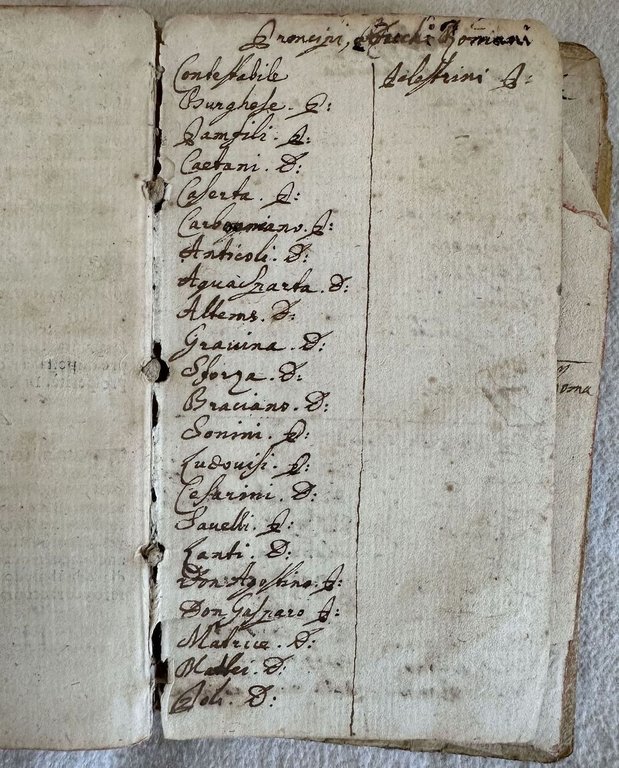 Prencipi, e Ducchi Romani
Contestabile
Burghese. P:
Pamfili. P:
Caetani. D:
Caserta. P:
Carbognano. P:
Anticoli. D:
Aquasparta. D:
Altems. D:
Grauina. D:
Sforza. D:
Braciano. D:
Sonini. P:
Ludouisi. P:
Cesarini. D:
Sauelli. P:
Lanti. D:
Don Agostino. P:
Don Gasparo P:
Matrice. D:
Mattei. D:
Poli. D:
Palestrini P:
oma